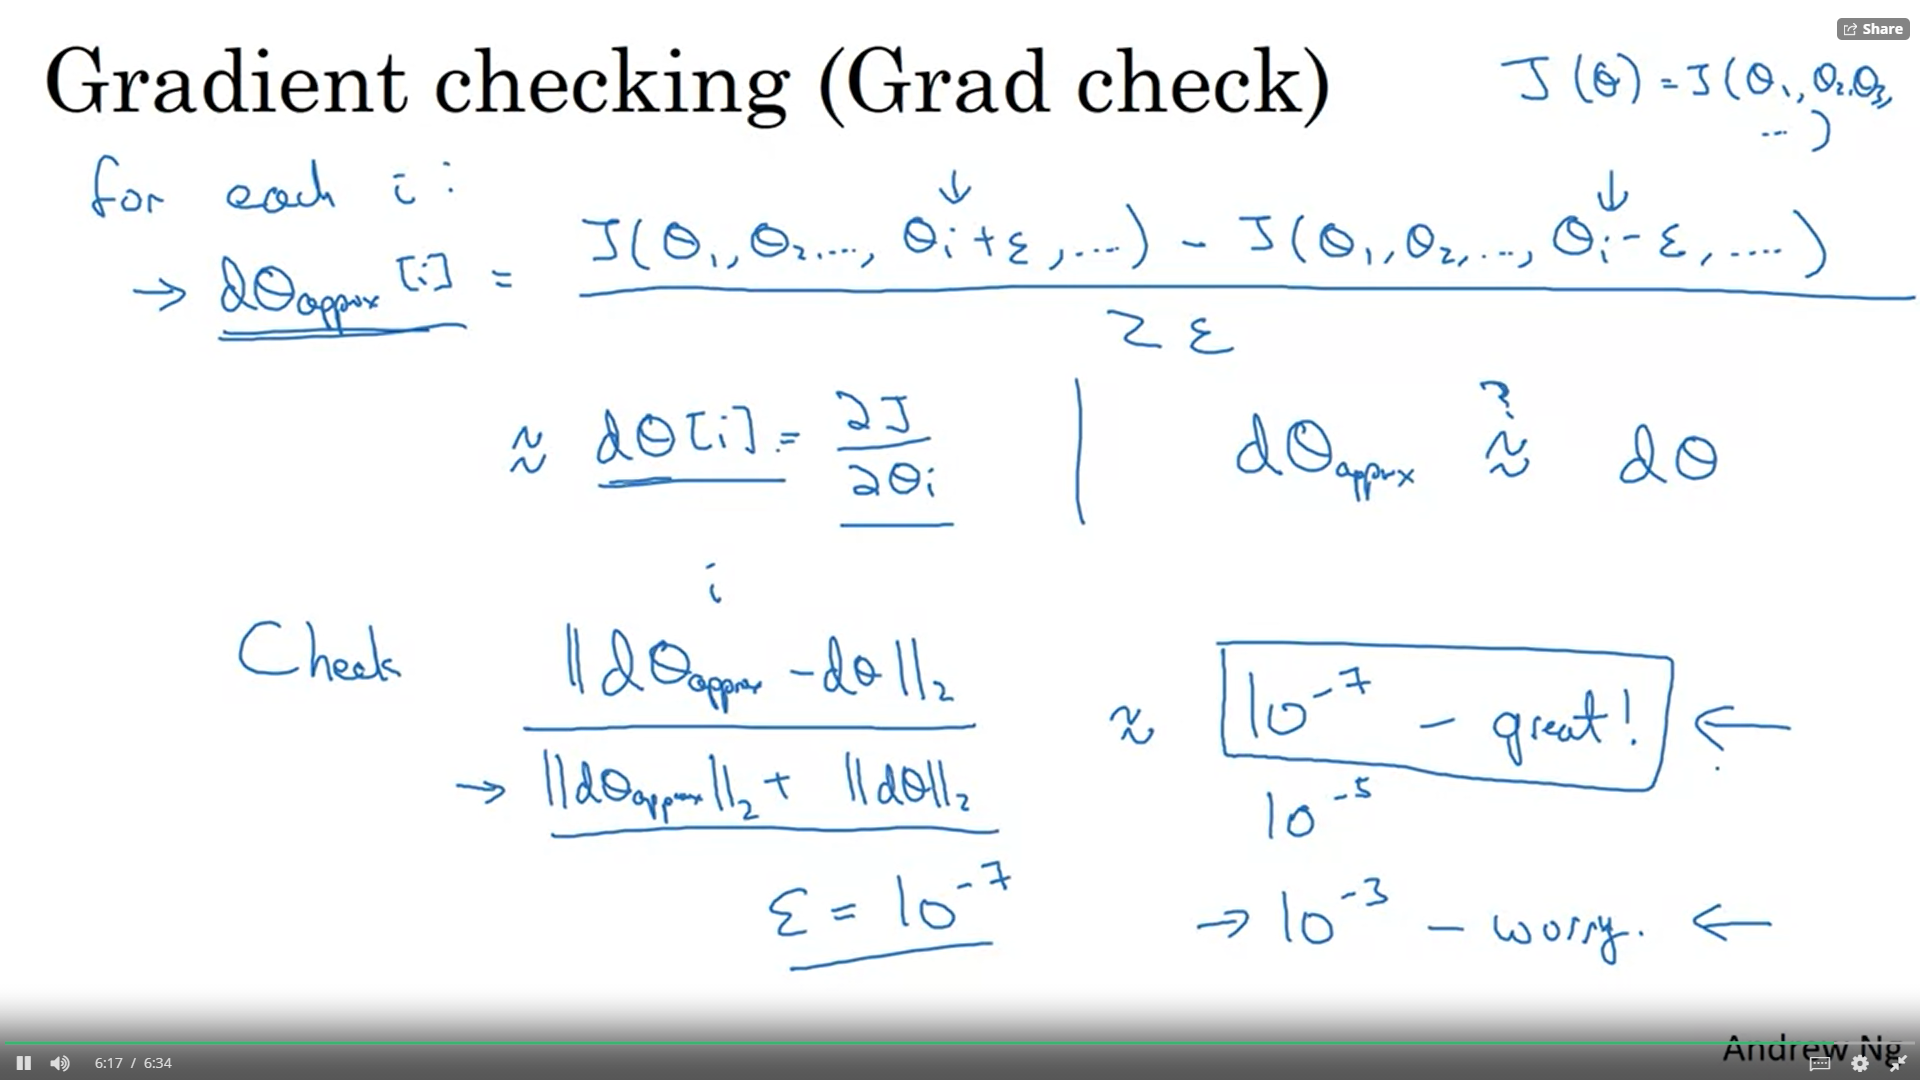 Share
Gradient checking (Grad check)
J(θ) = J(θ₁, θ₂, θ₃, ...)
for each i:
→ dθapprox[i] = J(θ₁, θ₂, ..., θᵢ+ε, ...) - J(θ₁, θ₂, ..., θᵢ-ε, ....)
2ε
≈ dθ[i] = ∂J/∂θᵢ | dθapprox ≈? dθ
i
Check ||dθapprox - dθ||₂
→ ||dθapprox||₂ + ||dθ||₂
≈ 10⁻⁷ - great! ←
10⁻⁵
ε = 10⁻⁷
→ 10⁻³ - worry. ←
Andrew Ng
6:17 / 6:34